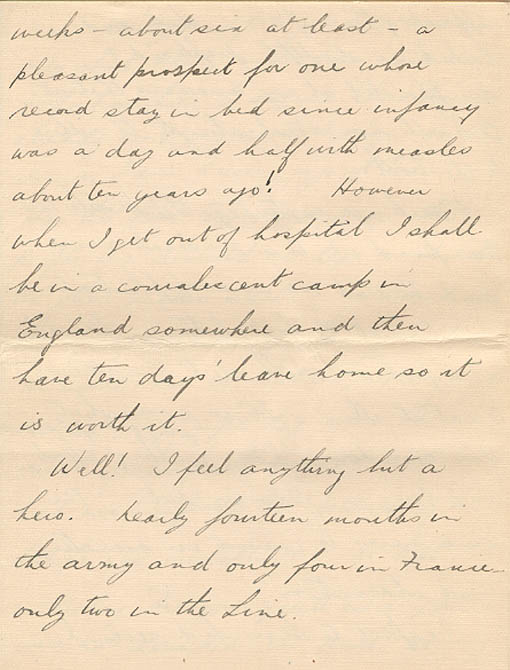 weeks – about six at least – a
pleasant prospect for one whose
record stay in bed since infancy
was a day and half with measles
about ten years ago! However
when I get out of hospital I shall
be in a convalescent camp in
England somewhere and then
have ten days' leave home so it
is worth it.
Well! I feel anything but a
hero. Nearly fourteen months in
the army and only four in France –
only two in the Line.